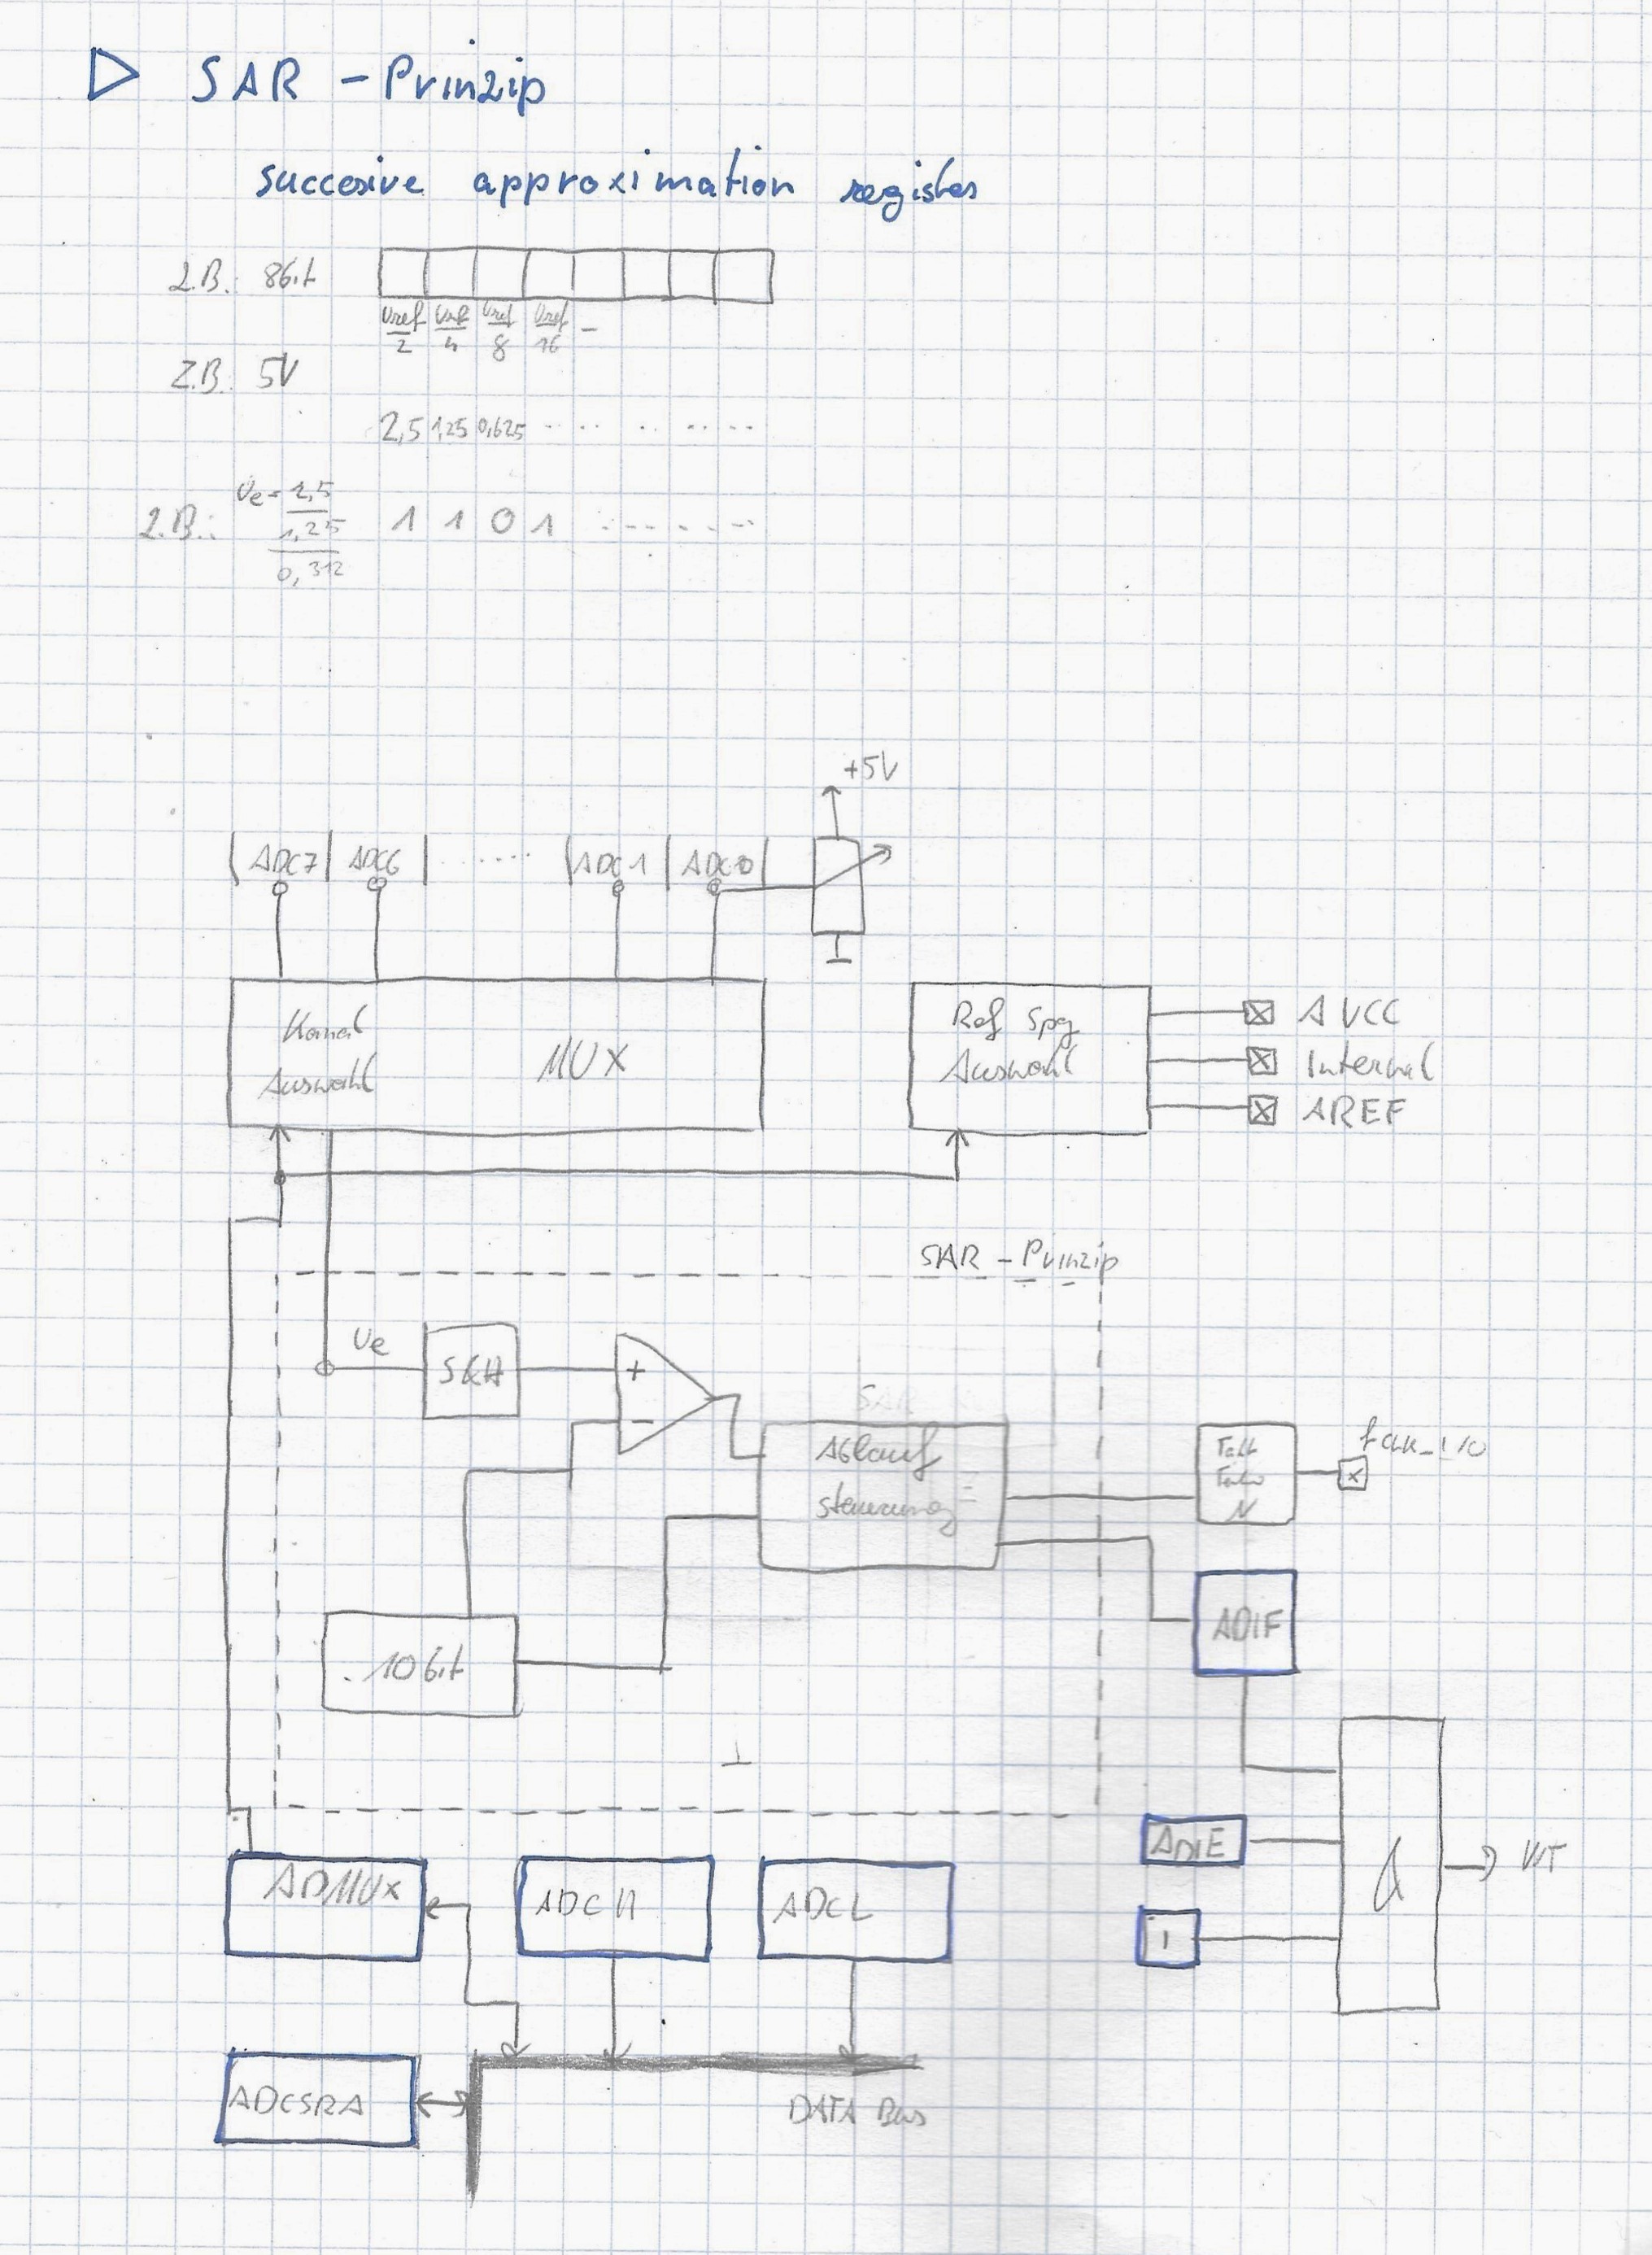 SAR - Prinzip
succesive approximation register
z.B.: 8bit
Uref/2 Uref/4 Uref/8 Uref/16 -
z.B. 5V
2,5 1,25 0,625 .... .. .....
z.B.:
1,25
0,312
1 1 0 1 .......
+5V
ADC7 ADC6 ...... ADC1 ADC0
Kanal
Auswahl
MUX
Ref Spg
Auswahl
AVCC
Internal
AREF
SAR - Prinzip
Ue
S&H
+
-
SAR
Ablauf
steuerung
Takt
N
fclk_I/O
10bit
ADIF
ADIE
I
&
INT
ADMUX
ADCH
ADCL
ADCSRA
DATA Bus